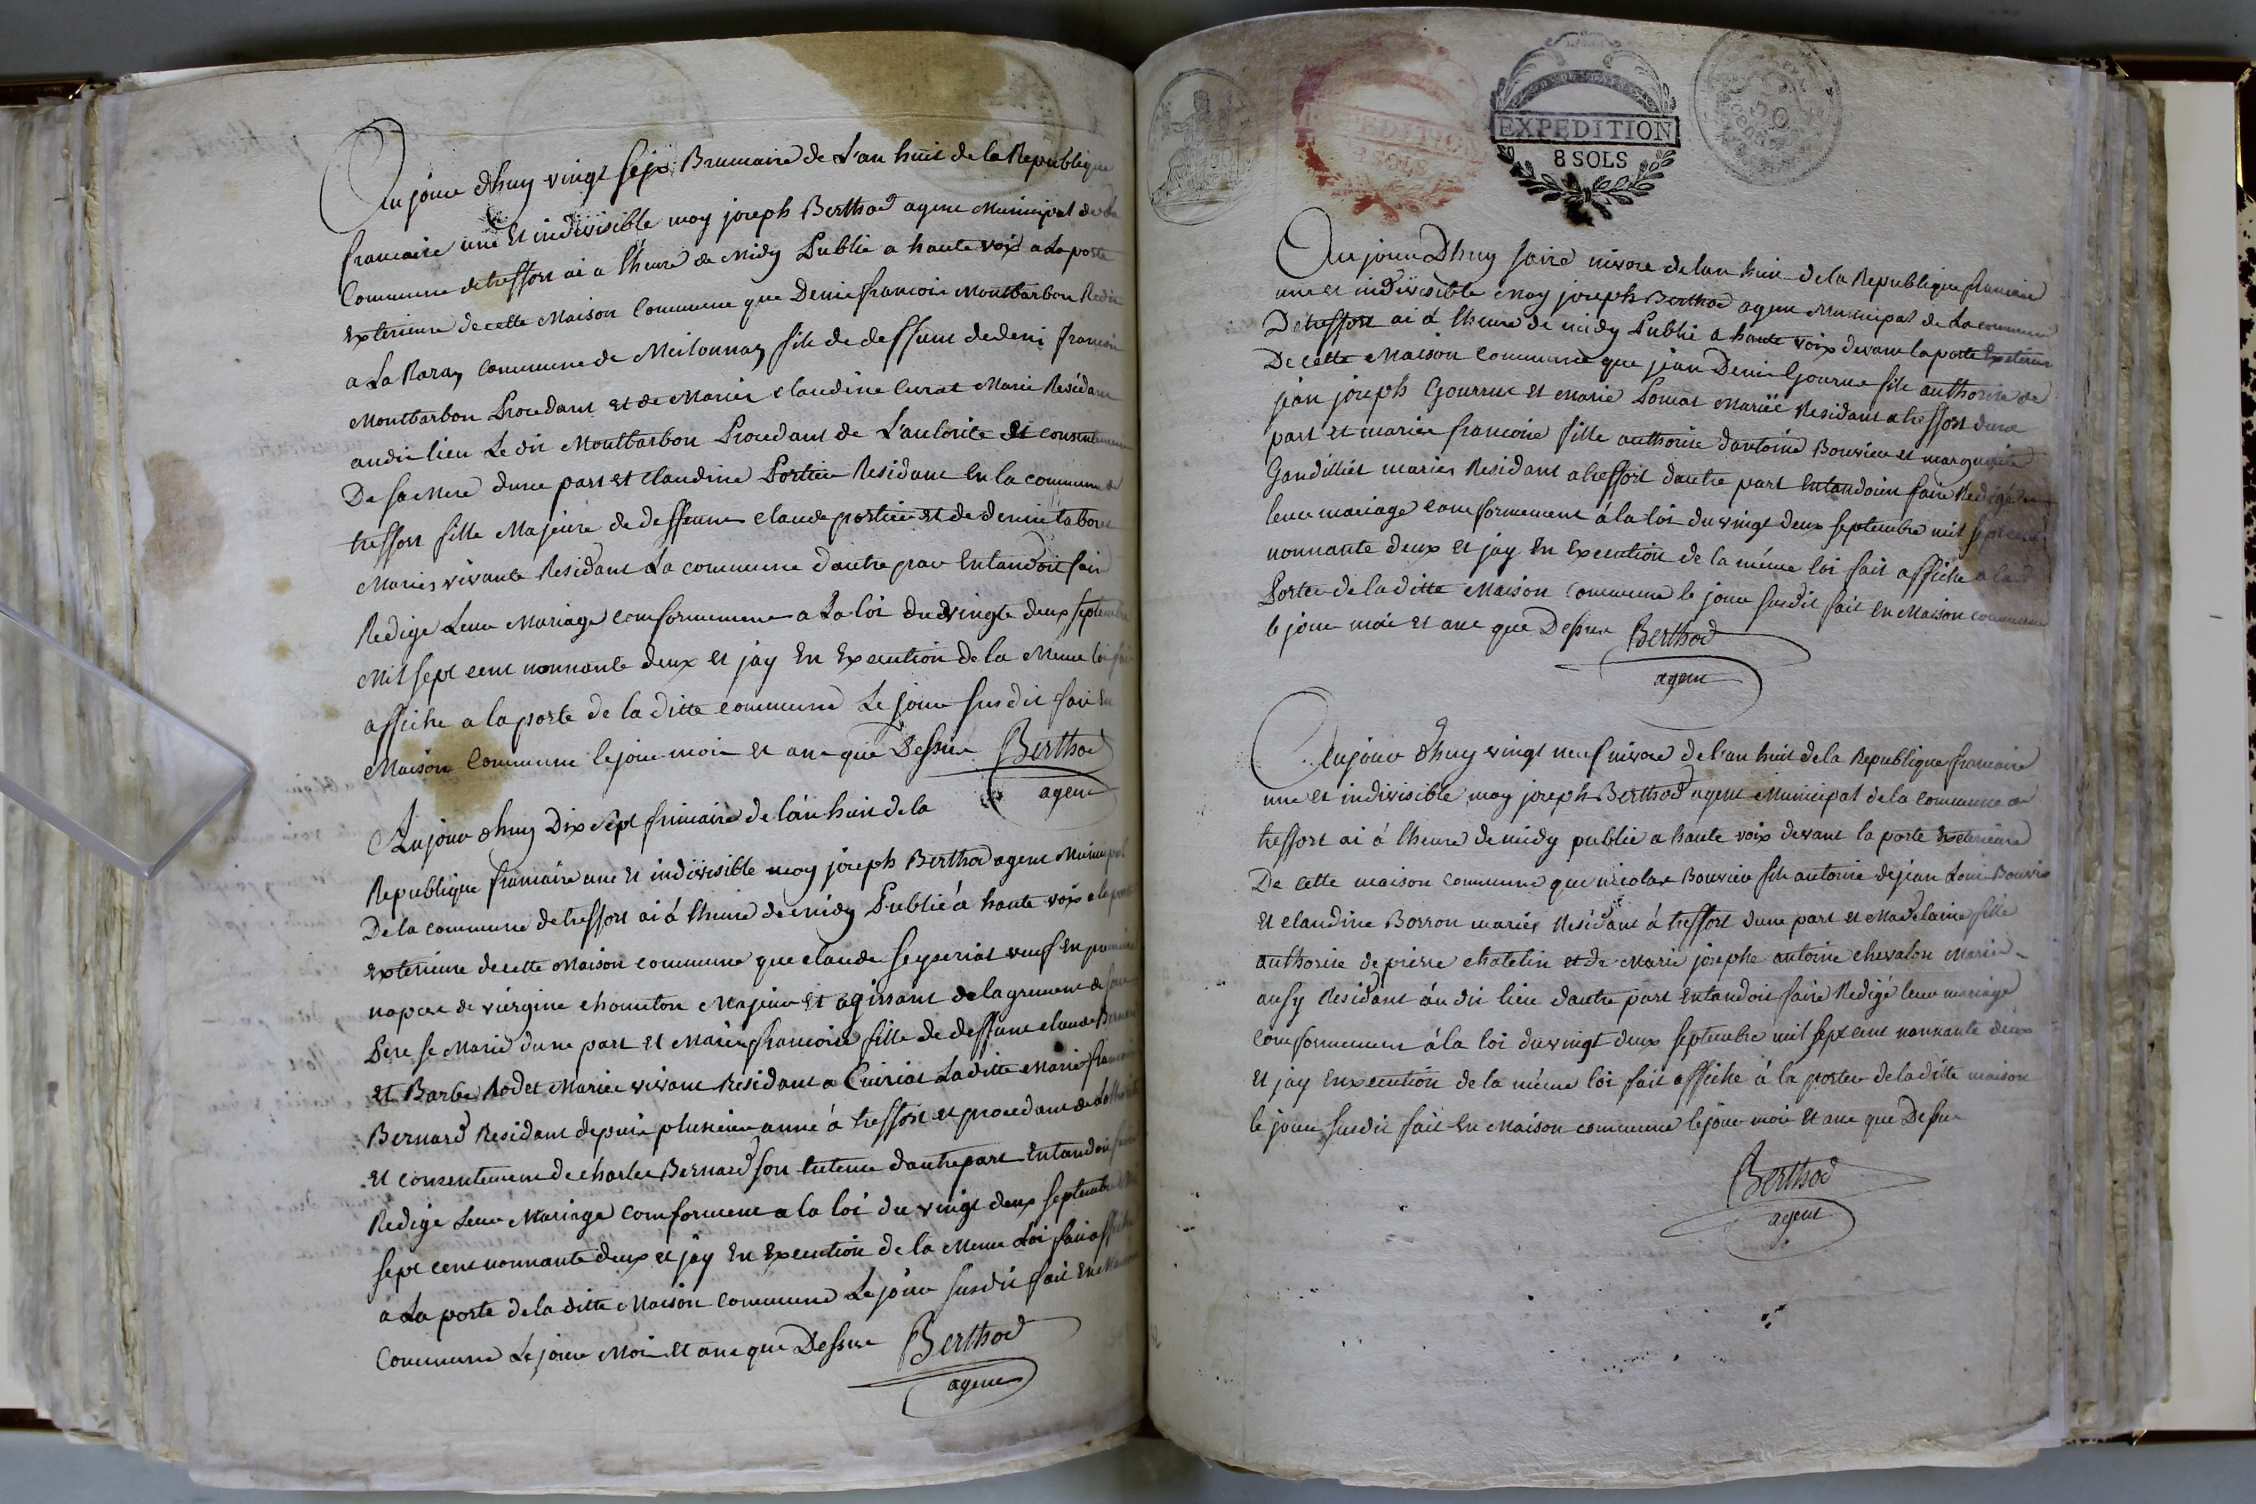 Aujour dhuy vingt sept Brumaire de L'an huit de la Republique
francaise une Et indivisible moy joseph Berthod agent Municipal de La
Commune detreffort ai a l'heure de Midy Publie a haute voix a La porte
Exterieure de cette Maison Commune que Denis francois Montbarbon Redit
a La Raza commune de Meilonnaz fils de deffunt dedeni francois
Montbarbon Procedant et de Marie claudine Curat Marie Residant
audit lieu Le dit Montbarbon Procedant de L'autorite et consentement
De sa Mere dune part et Claudine Portier Residant En la commune de
treffort fille Majeure de deffunt claude portier et de denise tabouret
Maries vivante Residant La commune d'autre par Entandoit fair
Redige Leur Mariage conformement a La loi du vingte deux septembre
Mil sept cent nonnante deux et jay En Execution de la Meme loi fait
affiche a la porte de la ditte commune Le jour susdit fait En
Maison Commune le jour moi et an que Dessus Berthod
agent
Aujour dhuy Dix sept frimaire de l'an huit de la
Republique francaise une et indivisible moy joseph Berthod agent Municipal
De la commune de treffort ai á l'heure de midy Publié á haute voix a la porte
Exterieure de cette Maison commune que claude seyseriat veuf En premier
nopce de viergine chouneton Majeur Et agissant de lagrement de son
Pere se Marie dune part et Marie francoise fille de deffunt claude Bernard
et Barbe Rodet Mariee vivant Residant a Cuiriat La ditte Marie francoise
Bernard Residant depuis plusieur anné á treffort et procedant de Lothorité
et consentement de charles Bernard son tuteur dautre part Entandoit faire
Redige Leur Mariage conforment a la loi du vingt deux septembre Mil
sept cent nonnante deux et jay En Execution de la Meme Loi fait affiche
a La porte de la ditte Maison Commune Le jour susdit fait En Maison
Commune Le jour Moi Et an que Dessus Berthod
agent
EXPEDITION
8 SOLS
EXPEDITION
8 SOLS
Aujour Dhuy saize nivose de lan huit de la Republique francaise
une et indivisible moy joseph Berthod agent Municipal de La commune
De treffort ai á l'heure de midy Publié a haute voix devant la porte Exterieure
De cette Maison Commune que jean Denis Gourne fils authorise de
jean joseph Gourne et Marie Pomat Mariée Residant a treffort dune
part et mariee francoise fille authorise dantoine Bouvier et marguerite
Gandilliet mariés Residant a treffort dautre part Entandoient faire Redigé
leur mariage conformement á la loi du vingt deux septembre mil sept cent
nonnante deux et jay En Execution de la méme loi fait affiche a la
Porte de la ditte Maison Commune le jour susdit fait En Maison commune
le jour moi et ane que Dessus Berthod
agent
Aujour dhuy vingt neuf nivose de l'an huit de la Republique francaise
une et indivisible moy joseph Berthod agent Municipal de la commune de
treffort ai á l'heure de midy publié a haute voix devant la porte Exterieure
De cette maison commune que nicolas Bouvier fils antoine de jean Louis Bouvier
et claudine Borron mariés Residant á treffort dune part et Madelaine fille
authorise de pierre chatelin et de Marie josephe antoine chevalon Marié
ausy Residant áu dit lieu dautre part Entandoit faire Redigé leur mariage
conformement á la loi du vingt deux septembre mil sept cent nonnante deux
et jay En execution de la méme loi fait affiche á la porte de la ditte maison
le jour susdit fait En Maison commune le jour moi Et ane que Dessus
Berthod
agent